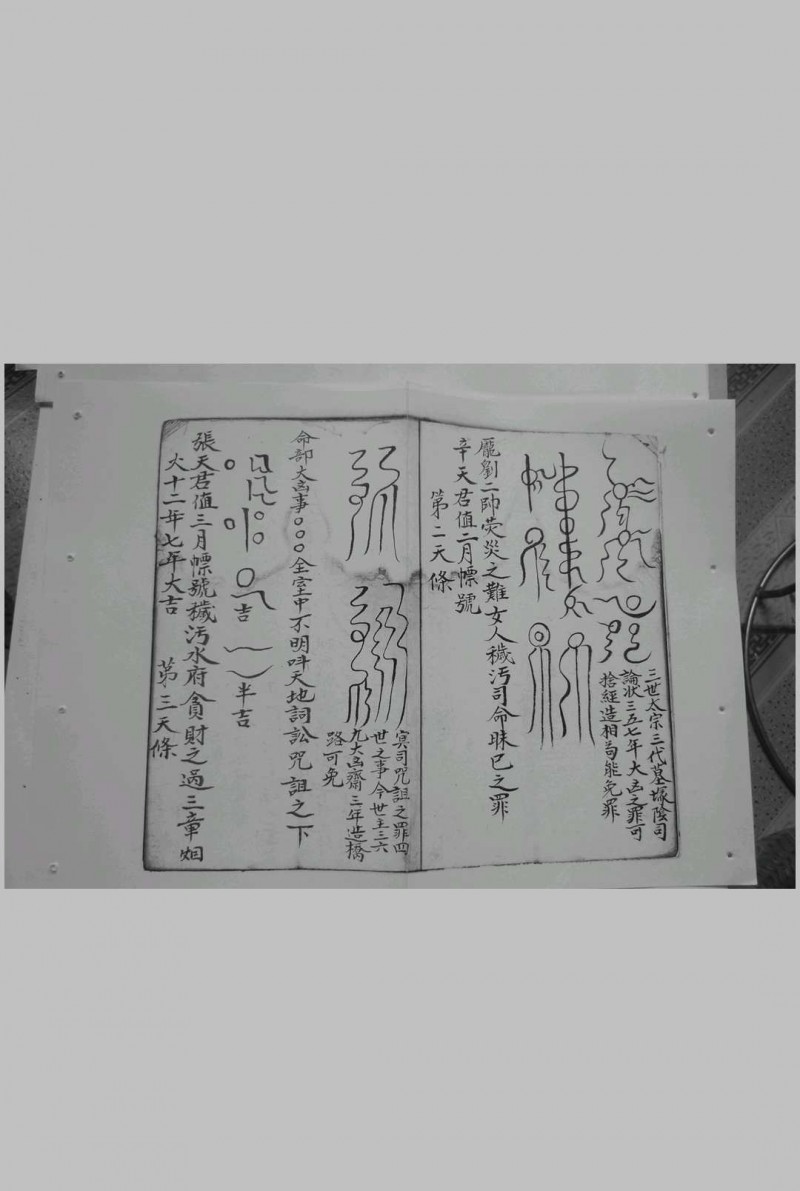 三世太宗三代墓塚陰司
論狀三五七年大凶之罪可
捨經造相苟能免罪
龐劉二帥熒災之難女人穢污司命昧巳之罪
辛天君值二月幖號
第二天條
冥司咒詛之罪四
世之事今世主三六
九大凶齋三年造橋
路可免
命部大凶事○○○全室中不明呌天地詞訟咒詛之下
吉
半吉
張天君值三月幖號穢污水府貪財之過三章
火十二年七年大吉
第三天條